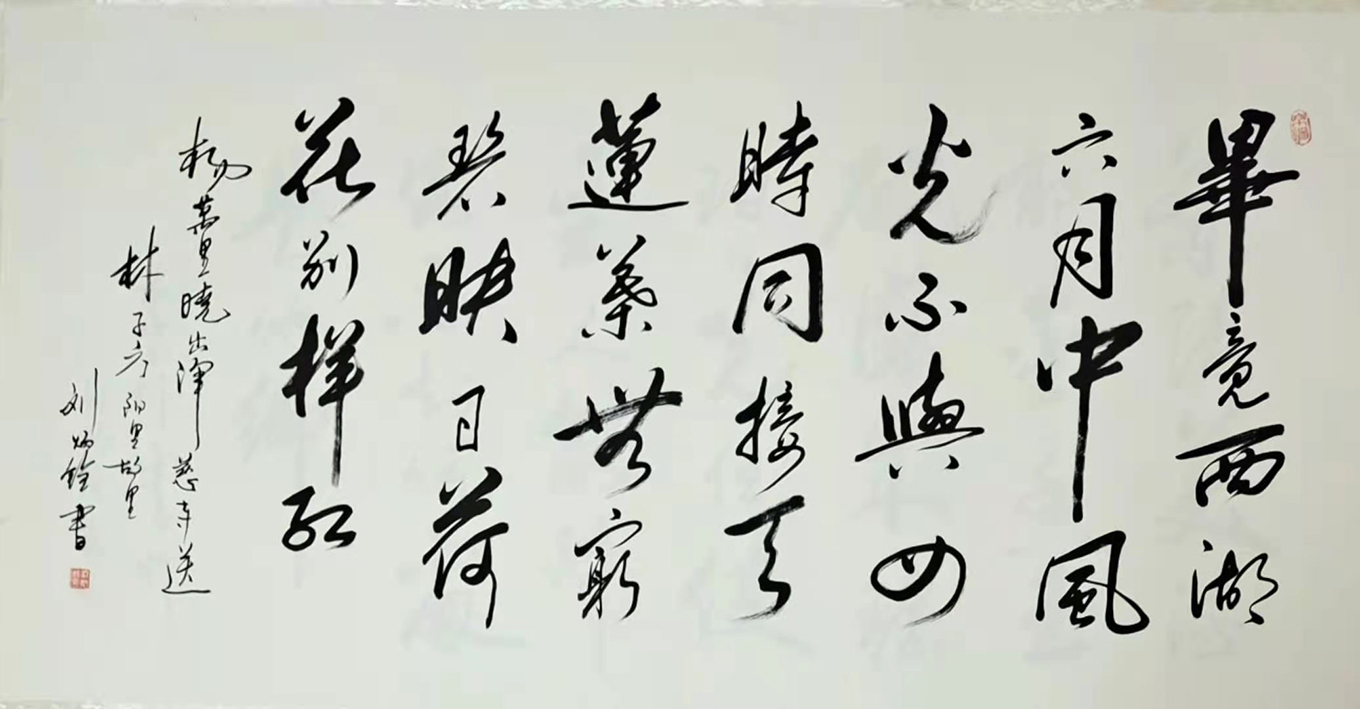 畢竟西湖
六月中風
光不與四
時同接天
蓮葉無窮
碧映日荷
花别样红
楊萬里曉出淨慈寺送
林子方 里故里
刘炳銓書